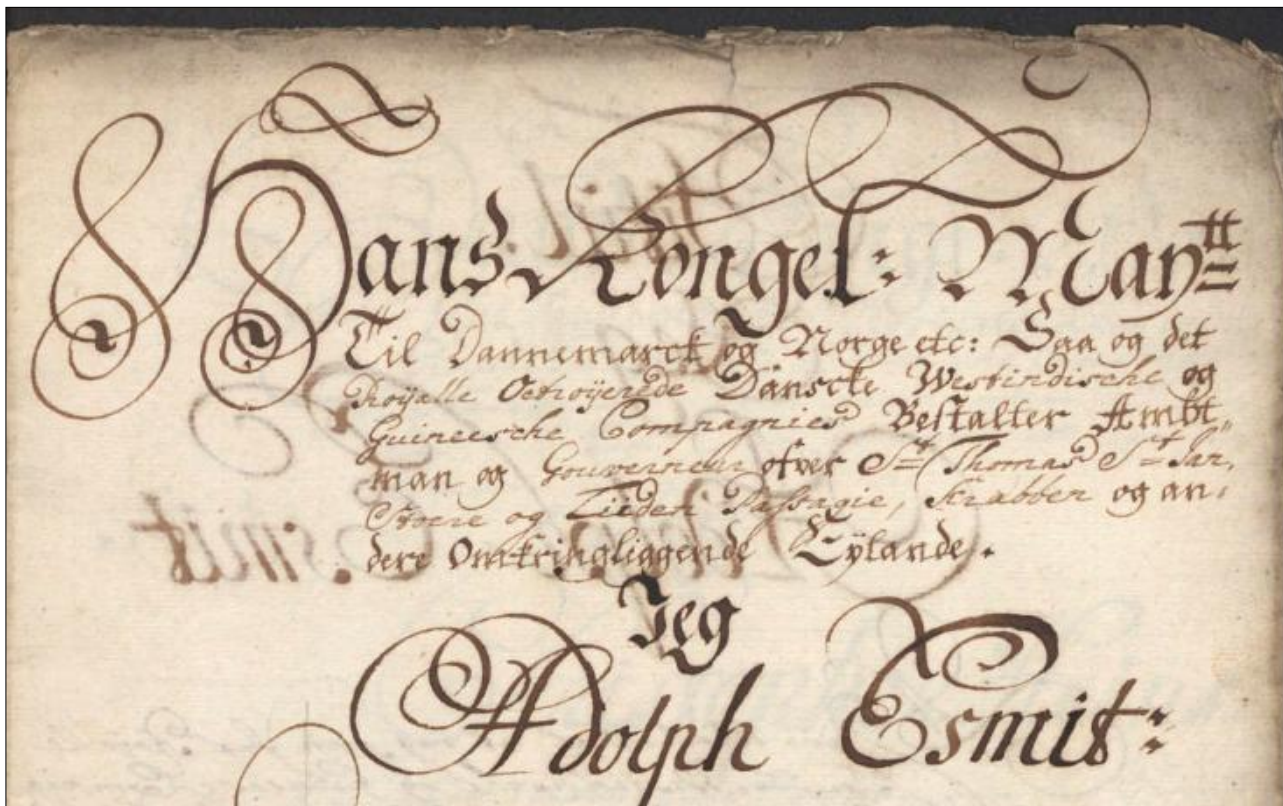 Hans Kongel: Maytt=
Til Dannemarck og Norge etc: Saa og det
Royalle Octroÿerede Danscke Westindische og
Guineesche Compagnies Bestalter Ambt„
man og Gouverneur ofver St Thomas St Jan,
Store og Liiden Passagie, Krabben og an,
dere Omkringliggende Eÿlande.
Jeg
Adolph Esmit: